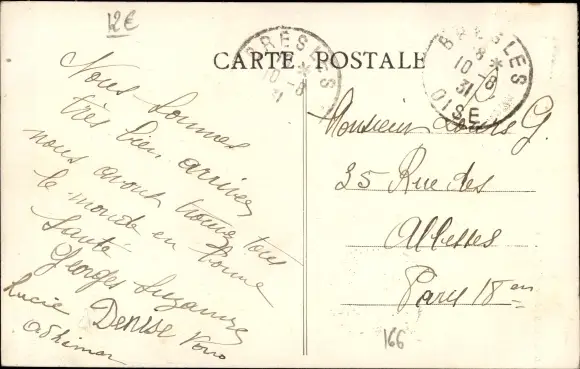 12€
CARTE POSTALE
BRESLES
10-8
31
BRESLES
*8
10-8
31
OISE
Nous sommes
très bien arrivés
nous avons trouvé tous
le monde en bonne
santé
Georges Suzanne
Lucie Denise
Adhimar
Monsieur Louis G.
35 Rue des
Abbesses
Paris 18en
166